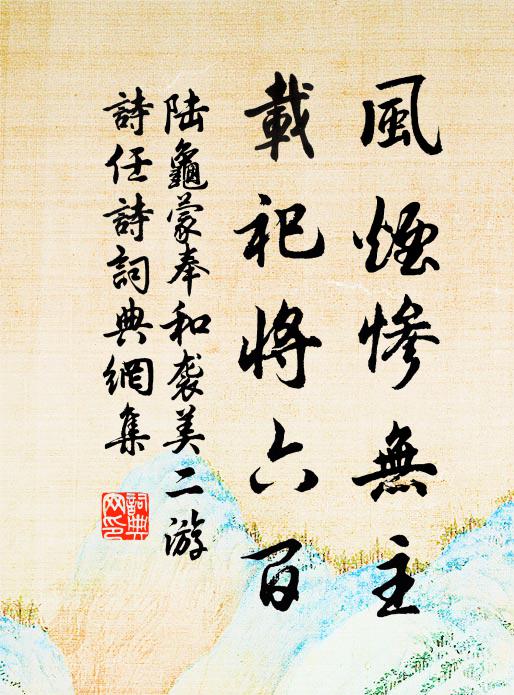 風煙慘無主
載祀將六百
陆龜蒙奉和袭美二游
詩任詩詞典網集
詞典网印